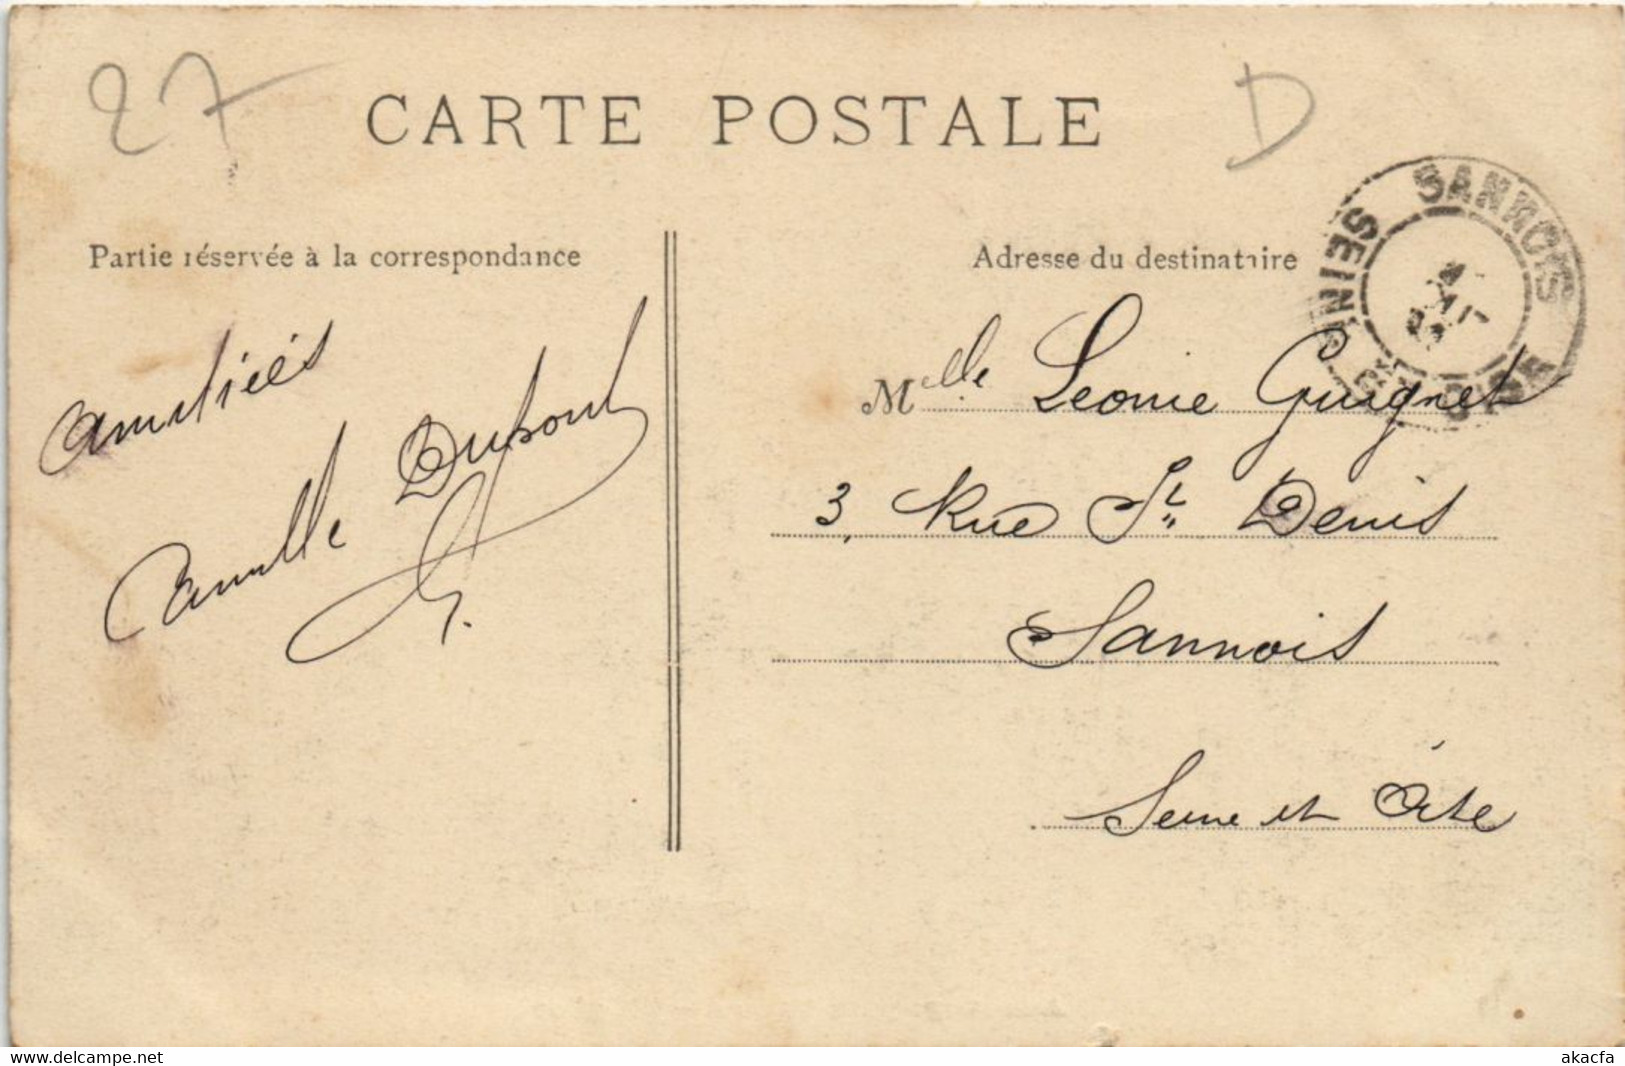 27
D
CARTE POSTALE
Partie réservée à la correspondance
Adresse du destinataire
SANNOIS
SEINE ET OISE
amitiés
Camille Dupont
Mlle Leonie Guignet
3, Rue St Denis
Sannois
Seine et Oise
www.delcampe.net
akacfa